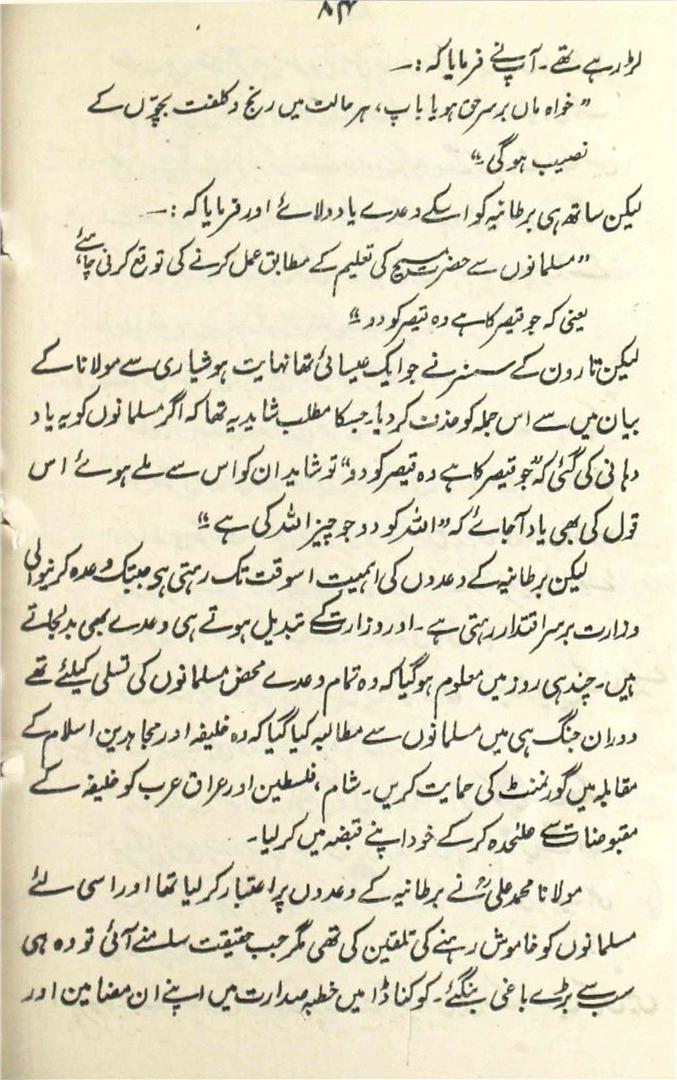 ۸۴
لڑ رہے تھے۔ آپ نے فرمایا کہ :۔
”خواہ ماں برسرِ حق ہو یا باپ، ہر حالت میں رنج و کلفت بچّوں کے
نصیب ہوگی۔“
لیکن ساتھ ہی برطانیہ کو اسکے وعدے یاد دلائے اور فرمایا کہ :۔
”مسلمانوں سے حضرت مسیح کی تعلیم کے مطابق عمل کرنے کی توقع کرنی چاہئے
یعنی کہ جو قیصر کا ہے وہ قیصر کو دو۔“
لیکن تارون کے سنسر نے جو ایک عیسائی تھا نہایت ہوشیاری سے مولانا کے
بیان میں سے اس جملہ کو حذف کر دیا۔ جسکا مطلب شاید یہ تھا کہ اگر مسلمانوں کو یہ یاد
دہانی کی گئی کہ ”جو قیصر کا ہے وہ قیصر کو دو“ تو شاید ان کو اس سے ملے ہوئے اس
قول کی بھی یاد آجائے کہ ”اللہ کو دو جو چیز اللہ کی ہے۔“
لیکن برطانیہ کے وعدوں کی اہمیت اسوقت تک رہتی ہی جبتک وعدہ کرنیوالی
وزارت برسر اقتدار رہتی ہے۔ اور وزارت کے تبدیل ہوتے ہی وعدے بھی بدلجاتے
ہیں۔ چند ہی روز میں معلوم ہوگیا کہ وہ تمام وعدے محض مسلمانوں کی تسلی کیلئے تھے
دوران جنگ ہی میں مسلمانوں سے مطالبہ کیا گیا کہ وہ خلیفہ اور مجاہدین اسلام کے
مقابلہ میں گورنمنٹ کی حمایت کریں۔ شام، فلسطین اور عراق عرب کو خلیفہ کے
مقبوضات سے علٰحدہ کر کے خود اپنے قبضہ میں کر لیا۔
مولانا محمد علیؒ نے برطانیہ کے وعدوں پر اعتبار کر لیا تھا اور اسی لئے
مسلمانوں کو خاموش رہنے کی تلقین کی تھی مگر جب حقیقت سامنے آئی تو وہ ہی
سب سے بڑے باغی بنگئے۔ کوکناڈا میں خطبہ صدارت میں اپنے ان مضامین اور